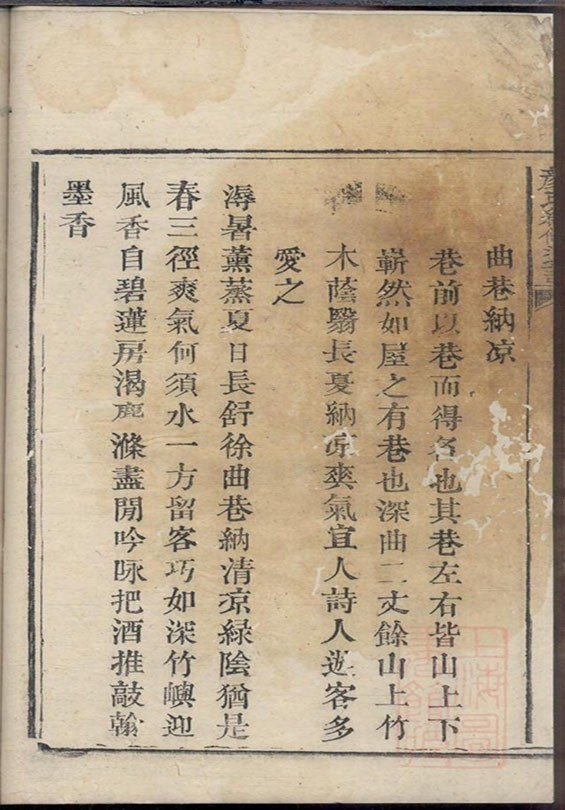 曲巷納凉
巷前以巷而得名也其巷左右皆山上下
嶄然如屋之有巷也深曲二丈餘山上竹
木蔭翳長夏納凉爽氣宜人詩人逰客多
愛之
溽暑薰蒸夏日長舒徐曲巷納清凉緑陰猶是
春三徑爽氣何須水一方留客巧如深竹嶼迎
風香自碧蓮房渴塵滌盡閒吟咏把酒推敲翰
墨香